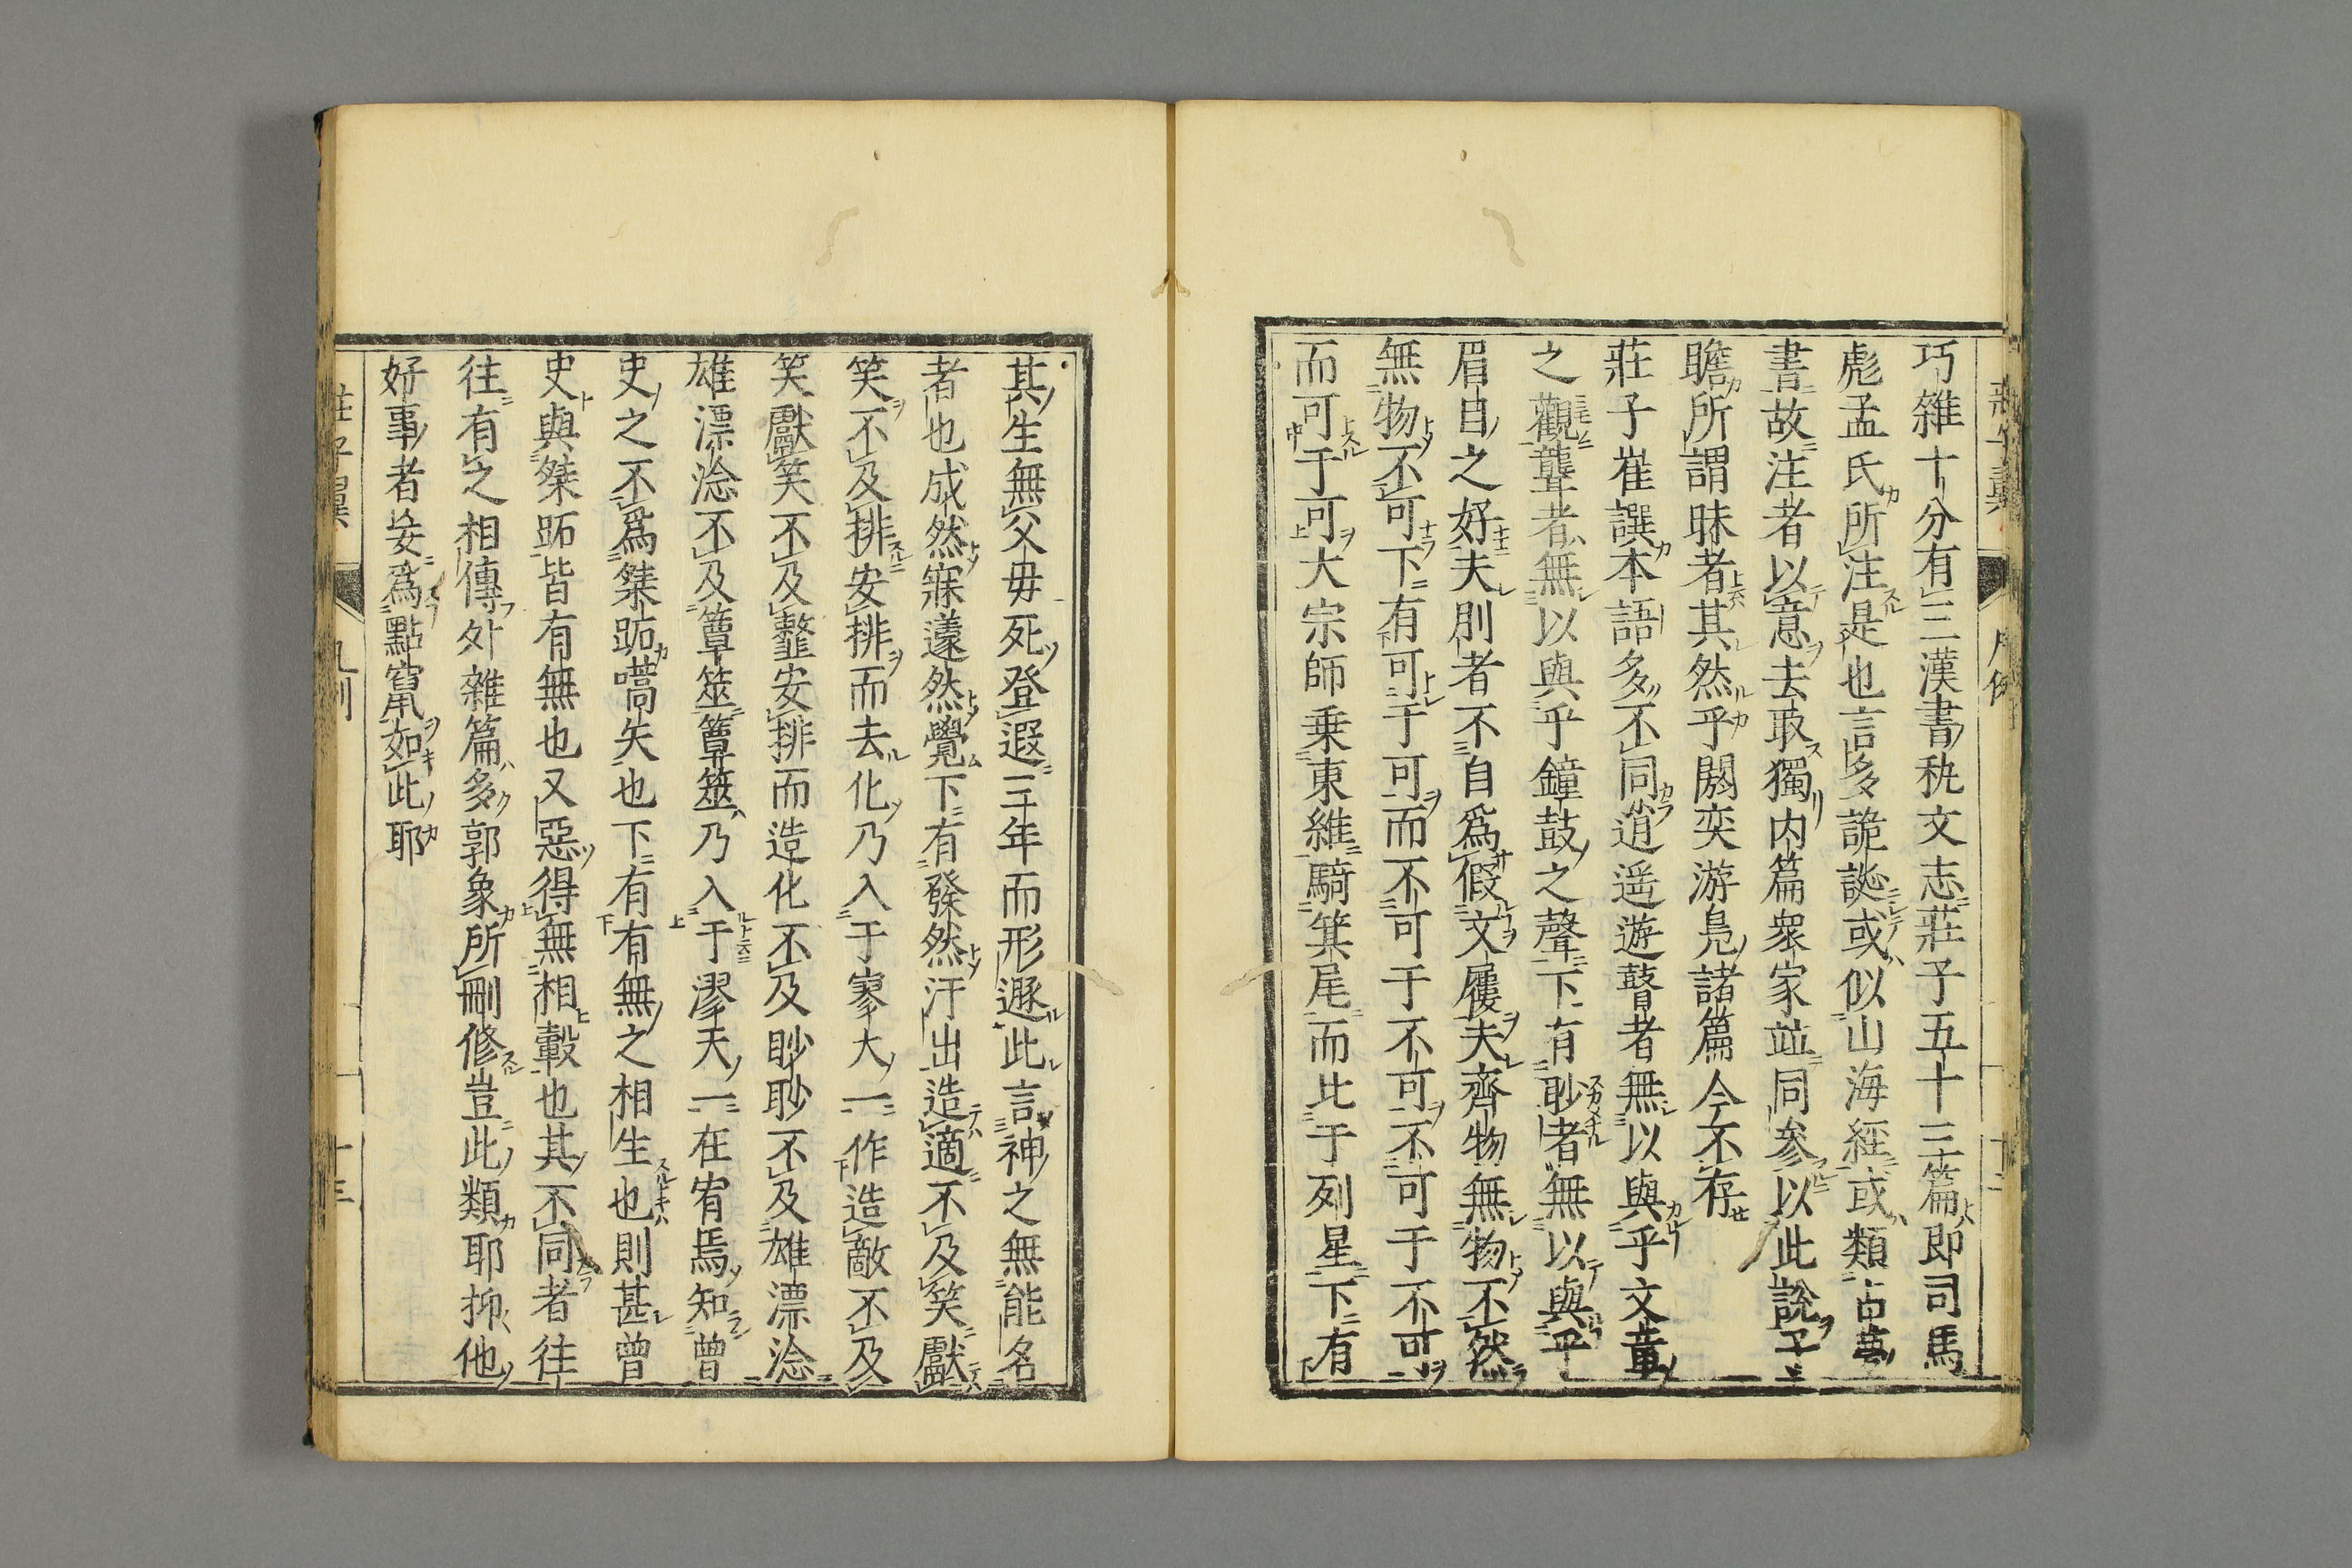 巧雜十分有三漢書秇文志莊子五十三篇即司馬
彪孟氏所注是也言多詭誕或似山海經或類占夢
書故注者以意去取獨内篇衆家竝同參以此說子
瞻所謂昧者其然乎閼奕游鳧諸篇今不存
莊子崔譔本語多不同逍遥遊瞽者無以與乎文章
之觀聾者無以與乎鐘鼓之聲下有眇者無以與乎
眉目之好夫刖者不自爲假文屨夫齊物無物不然
無物不可下有可于可而不可于不可不可于不可
而可于可大宗師乗東維騎箕尾而比于列星下有
其生無父毋死登遐三年而形遯此言神之無能名
者也成然寐蘧然覺下有發然汗出造適不及笑獻
笑不及排安排而去化乃入于寥大一作造敵不及
笑獻笑不及䪠安排而造化不及眇眇不及雄漂淰
雄漂淰不及簟筮簟筮乃入于漻天一在宥焉知曾
史之不爲桀跖嚆矢也下有有無之相生也則甚曾
史與桀跖皆有無也又惡得無相轂也其不同者往
往有之相傳外雜篇多郭象所刪修豈此類耶抑他
好事者妄爲點竄如此耶
莊子翼
凡例
十三